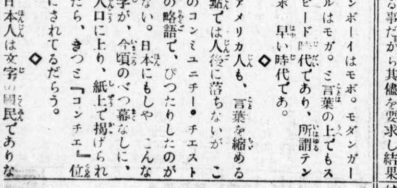 る事だから其儘を要求し結果は
ンボーイはモボ。モダンガー
ルはモガ。と言葉の上でもス
ピード時代であり、所謂テン
ポ　早い時代であ。
◇
アメリカ人も、言葉を縮める
點では人後に落ちないが　こ
のコンミユニチー・チエスト
の略語で、ぴつたりしたのが
ない。日本にもしや　こんな
字が、今頃のべつ幕なしに、
人口に上り、紙上で掲げられ
たら、きつと『コンチエ』位
にされてるだらう。
◇
日本人は文字の國民でありな